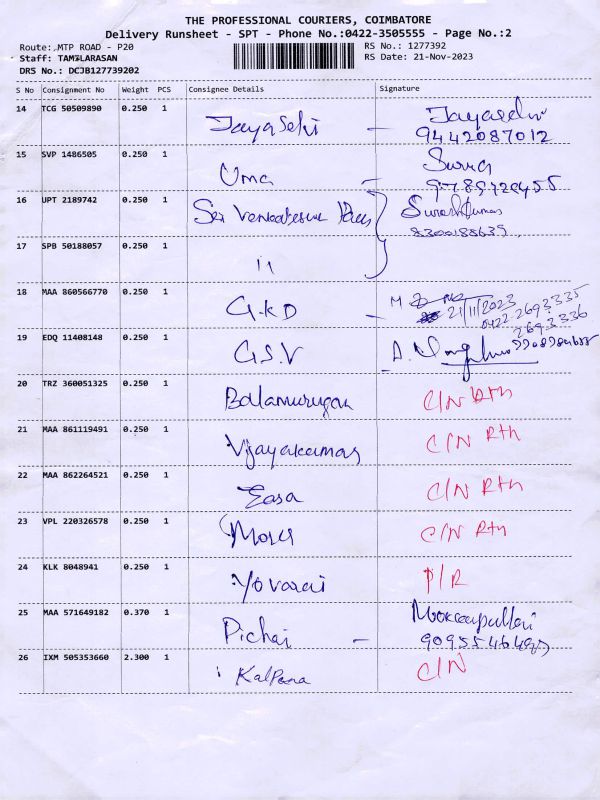 THE PROFESSIONAL COURIERS, COIMBATORE
Delivery Runsheet - SPT - Phone No.:0422-3505555 - Page No.:2
Route: MTP ROAD - P20
RS No.: 1277392
Staff: TAMILARASAN
RS Date: 21-Nov-2023
DRS No.: DCJB127739202
S No Consignment No Weight PCS Consignee Details Signature
14 TCG 50509890 0.250 1 Jayaselvi - Jayaselvi
9442087012
15 SVP 1486505 0.250 1 Uma
16 UPT 2189742 0.250 1 Sri Venkatesura Sureshkumar
8300188639
17 SPB 50188057 0.250 1 "
18 MAA 860566770 0.250 1 G.K.D - M
21/11/2023
0422-2693335
2693336
19 EDQ 11408148 0.250 1 G.S.V
20 TRZ 360051325 0.250 1 Balamurugan C/N Rtn
21 MAA 861119491 0.250 1 Vijayakumar C/N Rtn
22 MAA 862264521 0.250 1 Easa C/N Rtn
23 VPL 220326578 0.250 1 C/N Rtn
24 KLK 8048941 0.250 1 Yovaraj P/R
25 MAA 571649182 0.370 1 Pichai -
26 IXM 505353660 2.300 1 Kalpana C/N